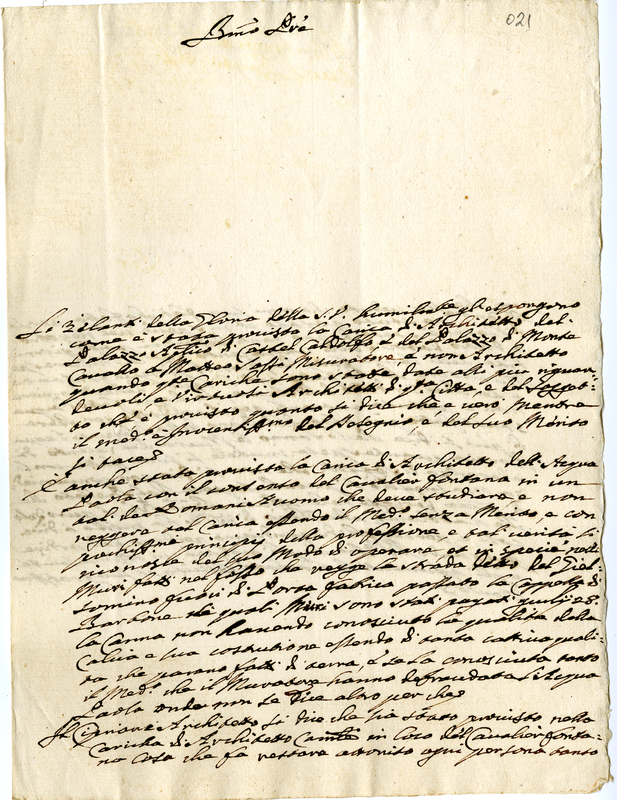 021
Bmo Pre
Li Zelanti della Gloria della S.V. humilmte gli espongono
come è stata provista la Carica di Architetto del
Palazzo Aplico di Castel Gandolfo e del Palazzo di Monte
Cavallo a Matteo Sassi Misuratore, e non Architetto
quando qte Cariche sono statte date alli più riguar-
devoli, e virtuosi Architetti di qta Città, e del sogget-
to che è provisto quanto si dice che è vero mentre
il medo è Inocentissmo del Disegnio, e del suo Merito
si tace
È anche stata provista la Carica di Architetto dell'Acqua
Paola con il consenso del Cavalier Fontana in un
tal de Romani Auomo che deve studiare, e non
reggere tal Carica essendo il Medo senza Merito, e con
pochissimi principij della professione e tal verità si
riconosce del suo Modo di operare, et in specie nelli
Muri fatti nel fosso che regge la strada detto del Giel-
somino fuori di Porta fabrica passato la Cappella di
Barbone de quali Muri sono stati pagati giulij 28
la Canna non havendo conosciuto la qualità della
Calcia e sua costrutione essendo di tanta cattiva quali-
tà che parano fatti di terra, e se la conosciuta tanto
il Medo che il Muratore hanno defraudata l'Acqua
Paola onde non se dice altro per che
Il Cipriani Architetto si dice che sia stato provisto nella
Caricha di Architetto in loco del Cavalier Fonta-
na cosa che fa restare attonito ogni persona tanto